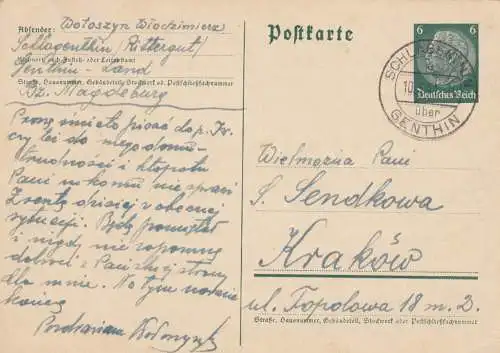 Absender: Wołoszyn Włodzimierz
Schlagenthin (Rittergut)
Wohnort, auch Zustell- oder Leitpostamt
Genthin-Land
Straße, Hausnummer, Gebäudeteil, Stockwerk od. Postschließfachnummer
Bz. Magdeburg
Proszę śmiało pisać do p. Kr.
czy też do niego
trudności i kłopotu
Pani nikomu nie sprawi
Zresztą dzisiaj w obecnej
sytuacji. Będę pamiętał
i nigdy nie zapomnę
dobroci z Pańskiej strony
dla mnie. Na tym narazie
kończę
Pozdrawiam Wołoszyn
Postkarte
6 6
Deutsches Reich
SCHLAGENTHIN
10.
über
GENTHIN
Wielmożna Pani
S. Sendkowa
Kraków
ul. Topolowa 18 m. 2.
Straße, Hausnummer, Gebäudeteil, Stockwerk oder Postschließfachnummer